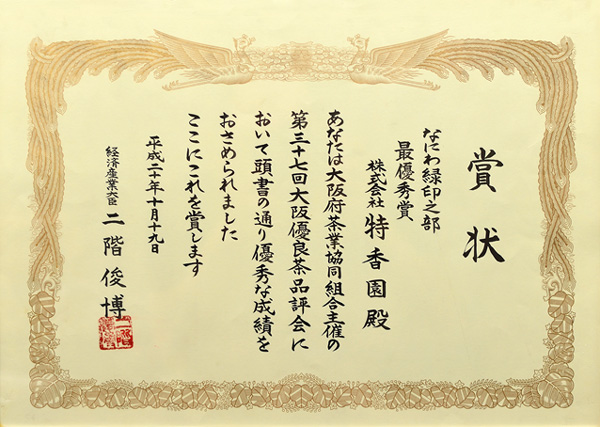 賞状
なにわ緑印之部
最優秀賞
株式会社 特香園殿
あなたは大阪府茶業協同組合主催の
第三十七回大阪優良茶品評会に
おいて頭書の通り優秀な成績を
おさめられました
ここにこれを賞します
平成二十年十月十九日
経済産業大臣 二階俊博